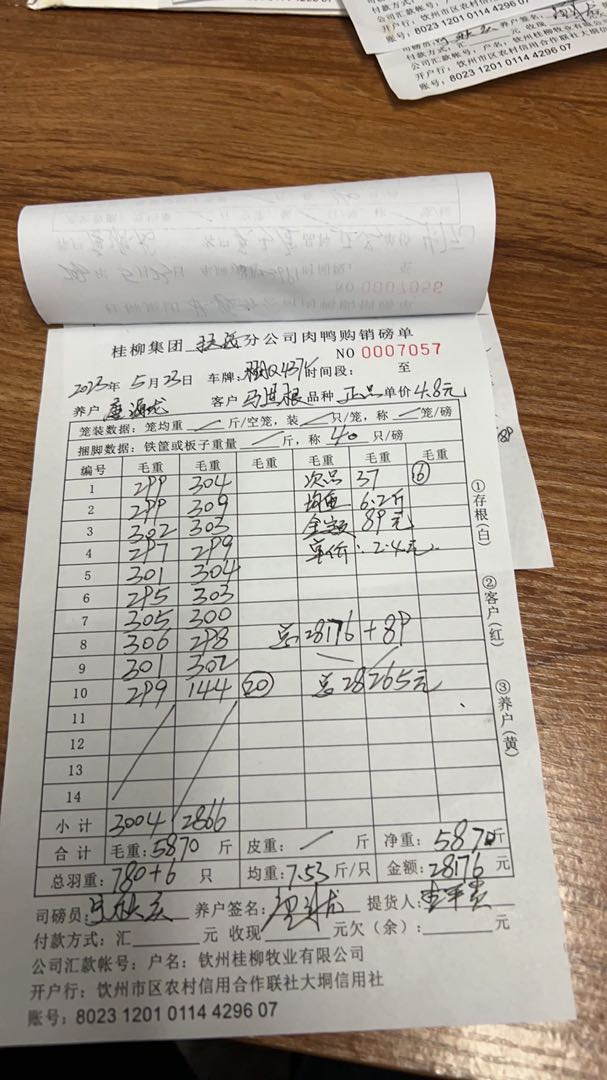 付款方式:汇
公司汇款帐号:户名:钦州桂柳牧业有限公
开户行:钦州市区农村信用合作联社大垌
账号:8023 1201 0114 4296 07
司磅员: 养户签名:
付款方式:汇 元 收现
公司汇款帐号:户名:钦州桂柳牧业
开户行:钦州市区农村信用合作联社大垌信
账号:8023 1201 0114 4296 07
NO 0007056
桂柳集团 分公司肉鸭购销磅单
NO 0007057
2023年 5月23日 车牌: 时间段: 至
养户 客户 品种 正品 单价 4.8元
笼装数据:笼均重 / 斤/空笼,装 / 只/笼,称 / 笼/磅
捆脚数据:铁筐或板子重量 / 斤,称 40 只/磅
编号 毛重 毛重 毛重 毛重 毛重 毛重
1 299 304 次品 37 ⑥
2 299 309 均重 6.2斤
3 302 303 金额 89元
4 297 299 单价:2.4元
5 301 304
6 295 303
7 305 300
8 306 298 总28176+89
9 301 302
10 299 144 ⑳ 总28265元
11
12
13
14
小计 3004 2866
合计 毛重:5870 斤 皮重: / 斤 净重:5870斤
总羽重:780+6 只 均重:7.53斤/只 金额:28176 元
司磅员: 养户签名: 提货人:
付款方式:汇 元 收现 元欠(余): 元
公司汇款帐号:户名:钦州桂柳牧业有限公司
开户行:钦州市区农村信用合作联社大垌信用社
账号:8023 1201 0114 4296 07
①存根(白)
②客户(红)
③养户(黄)